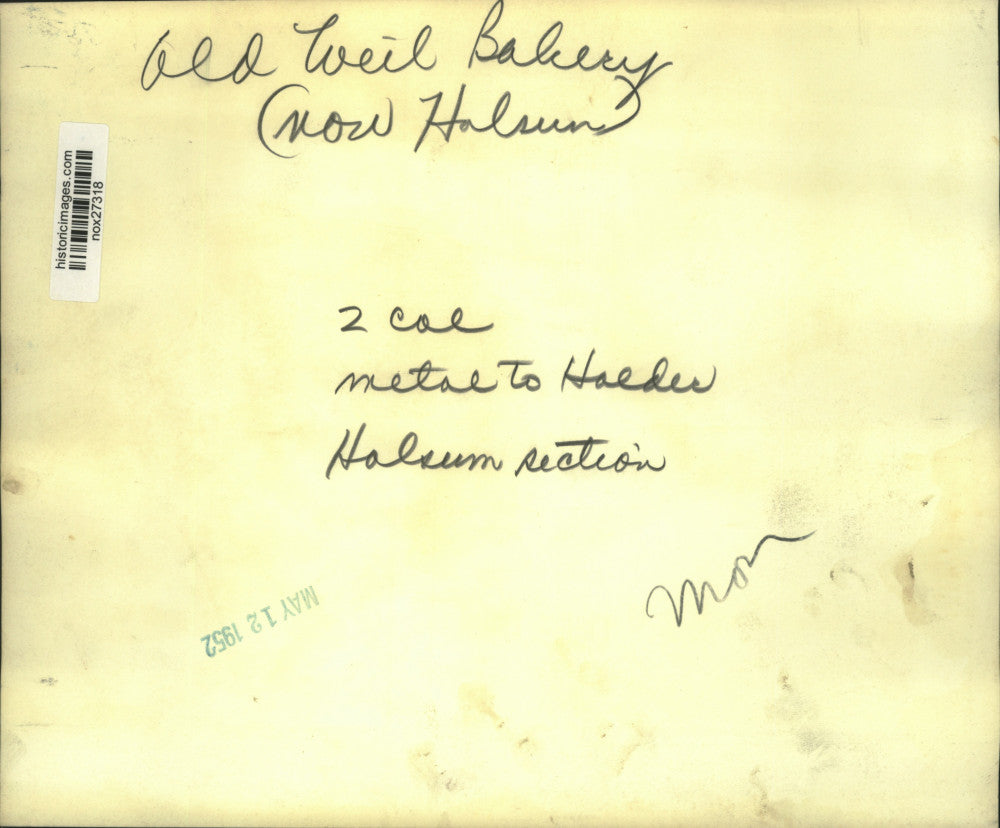 Old Weil Bakery
(now Holsum)
historicimages.com
nox27318
2 col
metal to Holder
Holsum section
Mon
MAY 12 1952